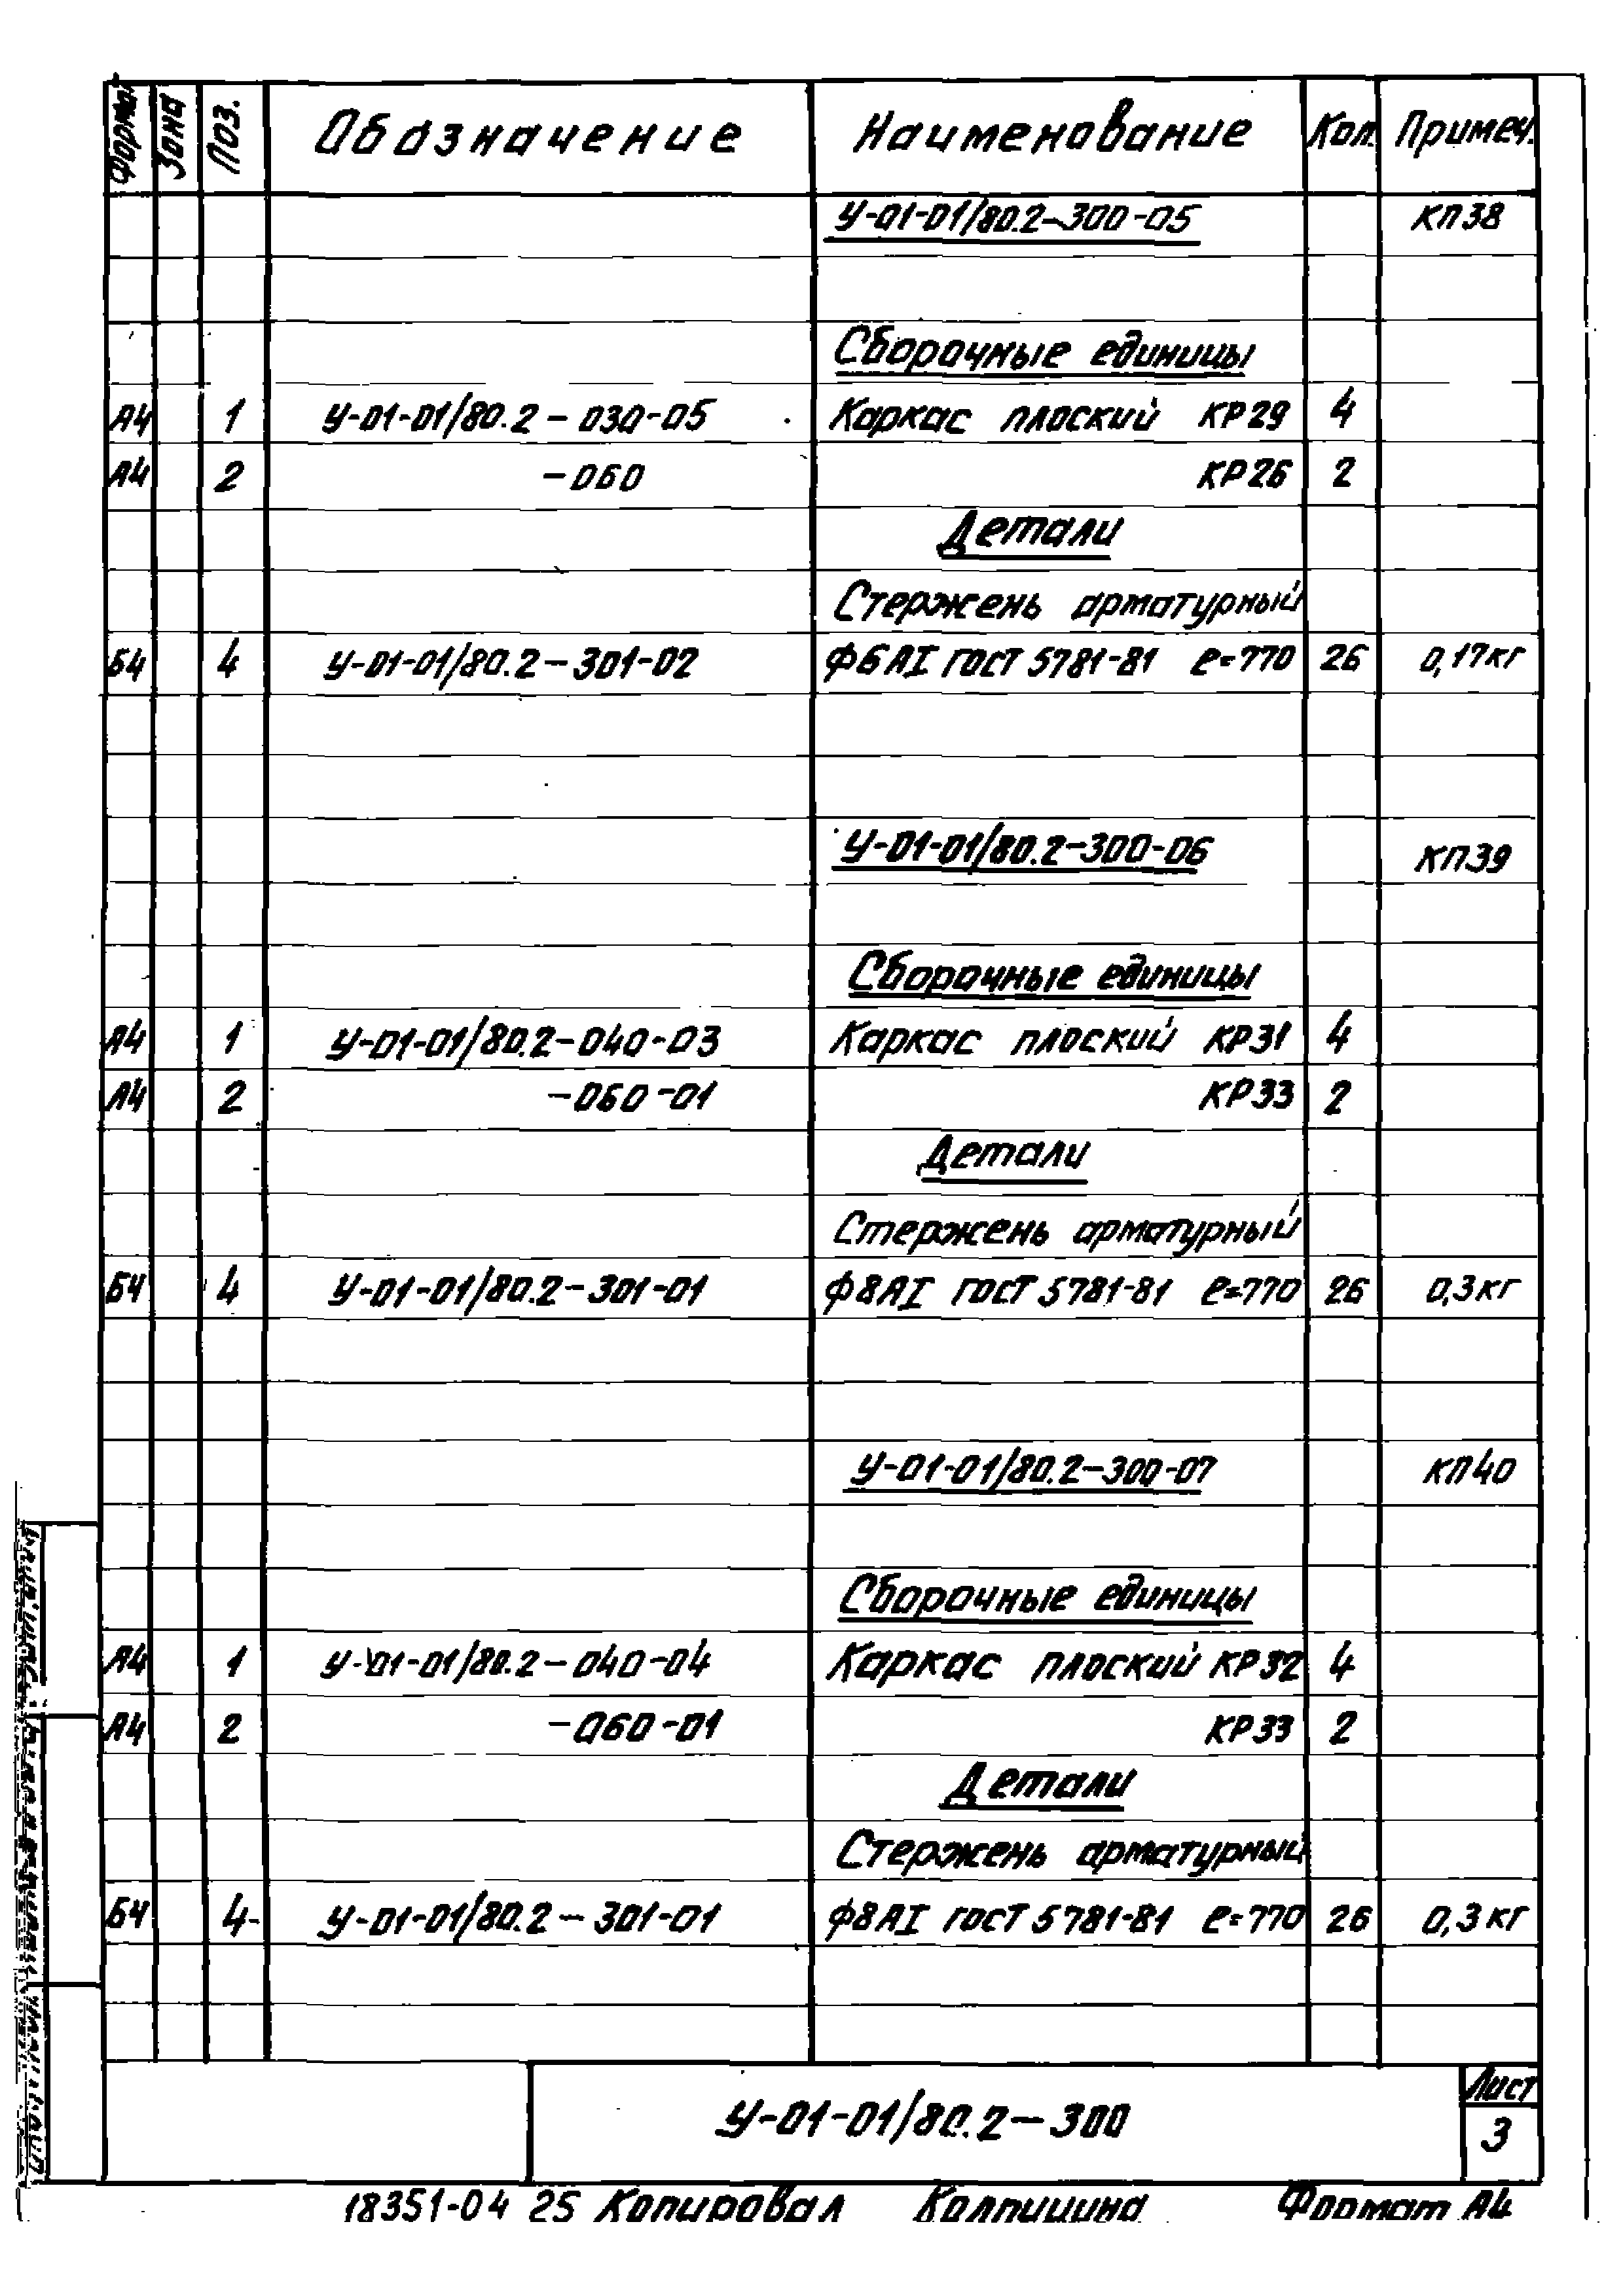 Формат Зона Поз. Обозначение Наименование Кол. Примеч.
У-01-01/80.2-300-05 КП38
Сборочные единицы
А4 1 У-01-01/80.2-030-05 Каркас плоский КР29 4
А4 2 -060 КР26 2
Детали
Стержень арматурный
Б4 4 У-01-01/80.2-301-02 Ф6АI ГОСТ 5781-81 ℓ=770 26 0,17кг
У-01-01/80.2-300-06 КП39
Сборочные единицы
А4 1 У-01-01/80.2-040-03 Каркас плоский КР31 4
А4 2 -060-01 КР33 2
Детали
Стержень арматурный
Б4 4 У-01-01/80.2-301-01 Ф8АI ГОСТ 5781-81 ℓ=770 26 0,3кг
У-01-01/80.2-300-07 КП40
Сборочные единицы
А4 1 У-01-01/80.2-040-04 Каркас плоский КР32 4
А4 2 -060-01 КР33 2
Детали
Стержень арматурный
Б4 4 У-01-01/80.2-301-01 Ф8АI ГОСТ 5781-81 ℓ=770 26 0,3кг
У-01-01/80.2-300
Лист
3
18351-04 25 Копировал Колпишина Формат А4